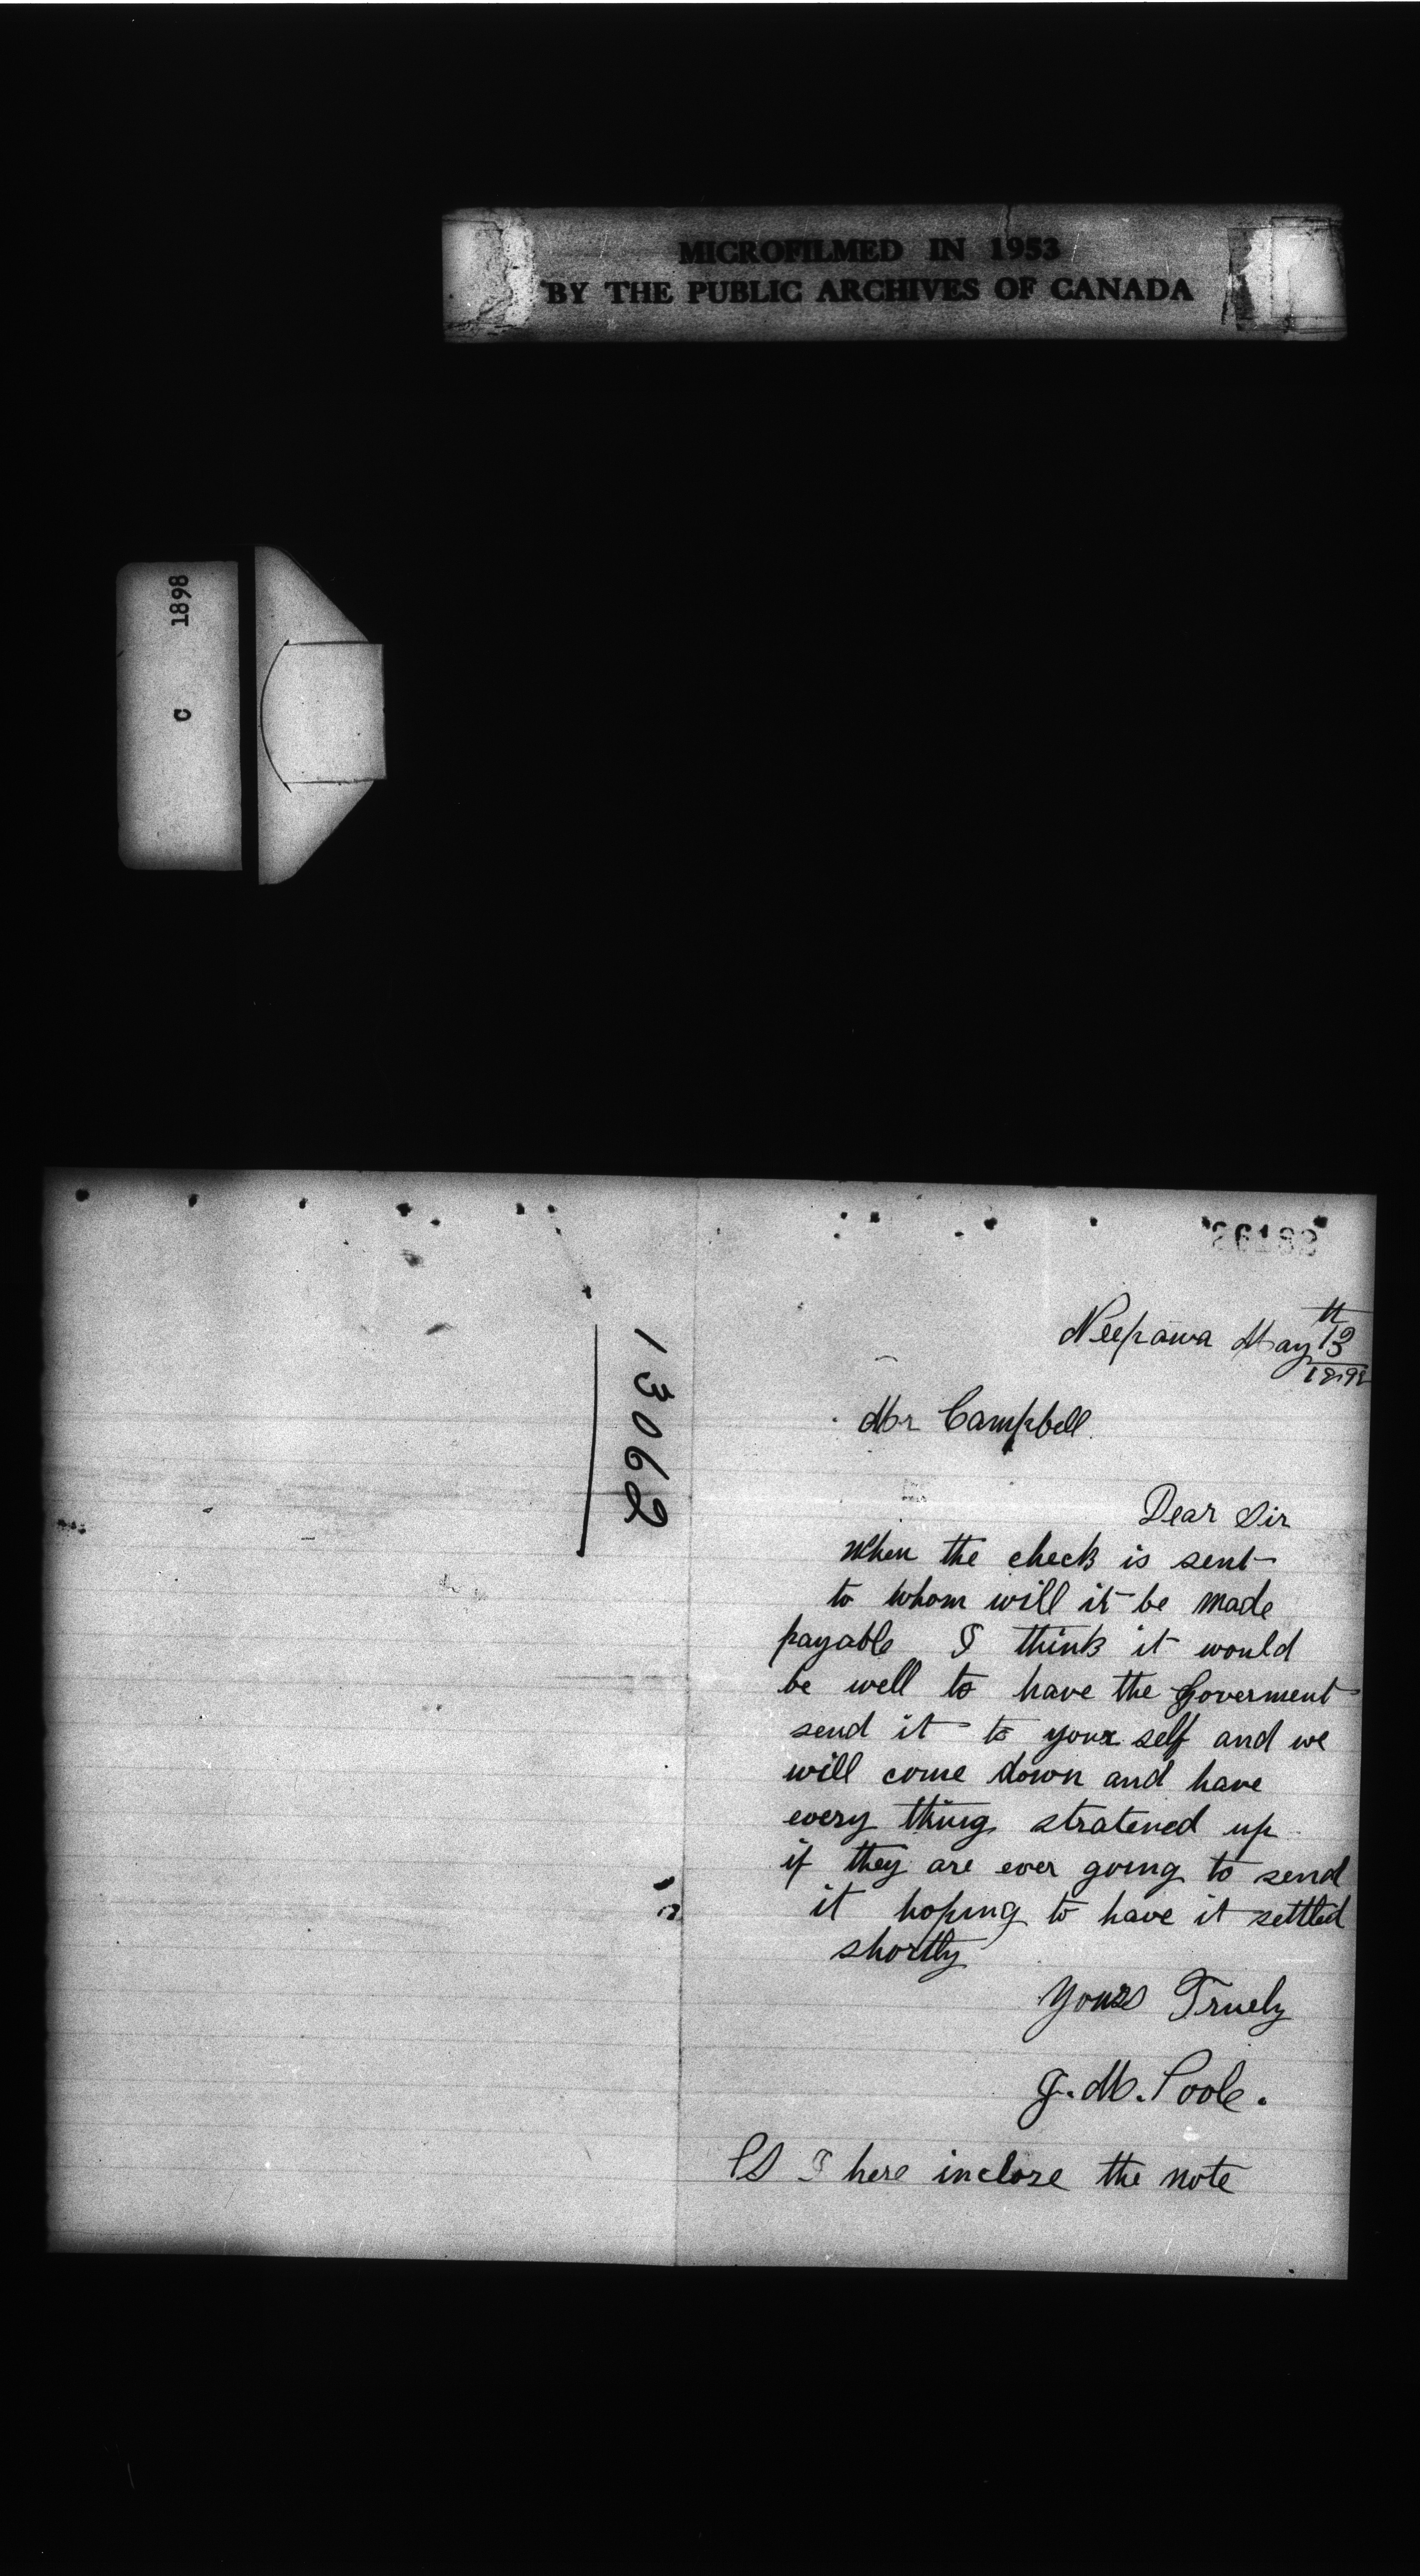 MICROFILMED IN 1953
BY THE PUBLIC ARCHIVES OF CANADA
C 1898
13062
Neepawa May 13th
Mr Campbell
Dear Sir
When the check is sent
to whom will it be made
payable I think it would
be well to have the Goverment
send it to your self and we
will come down and have
every thing stratened up
if they are ever going to send
it hoping to have it settled
shortly
Yours Truely
J. M. Poole.
PS I here inclose the note